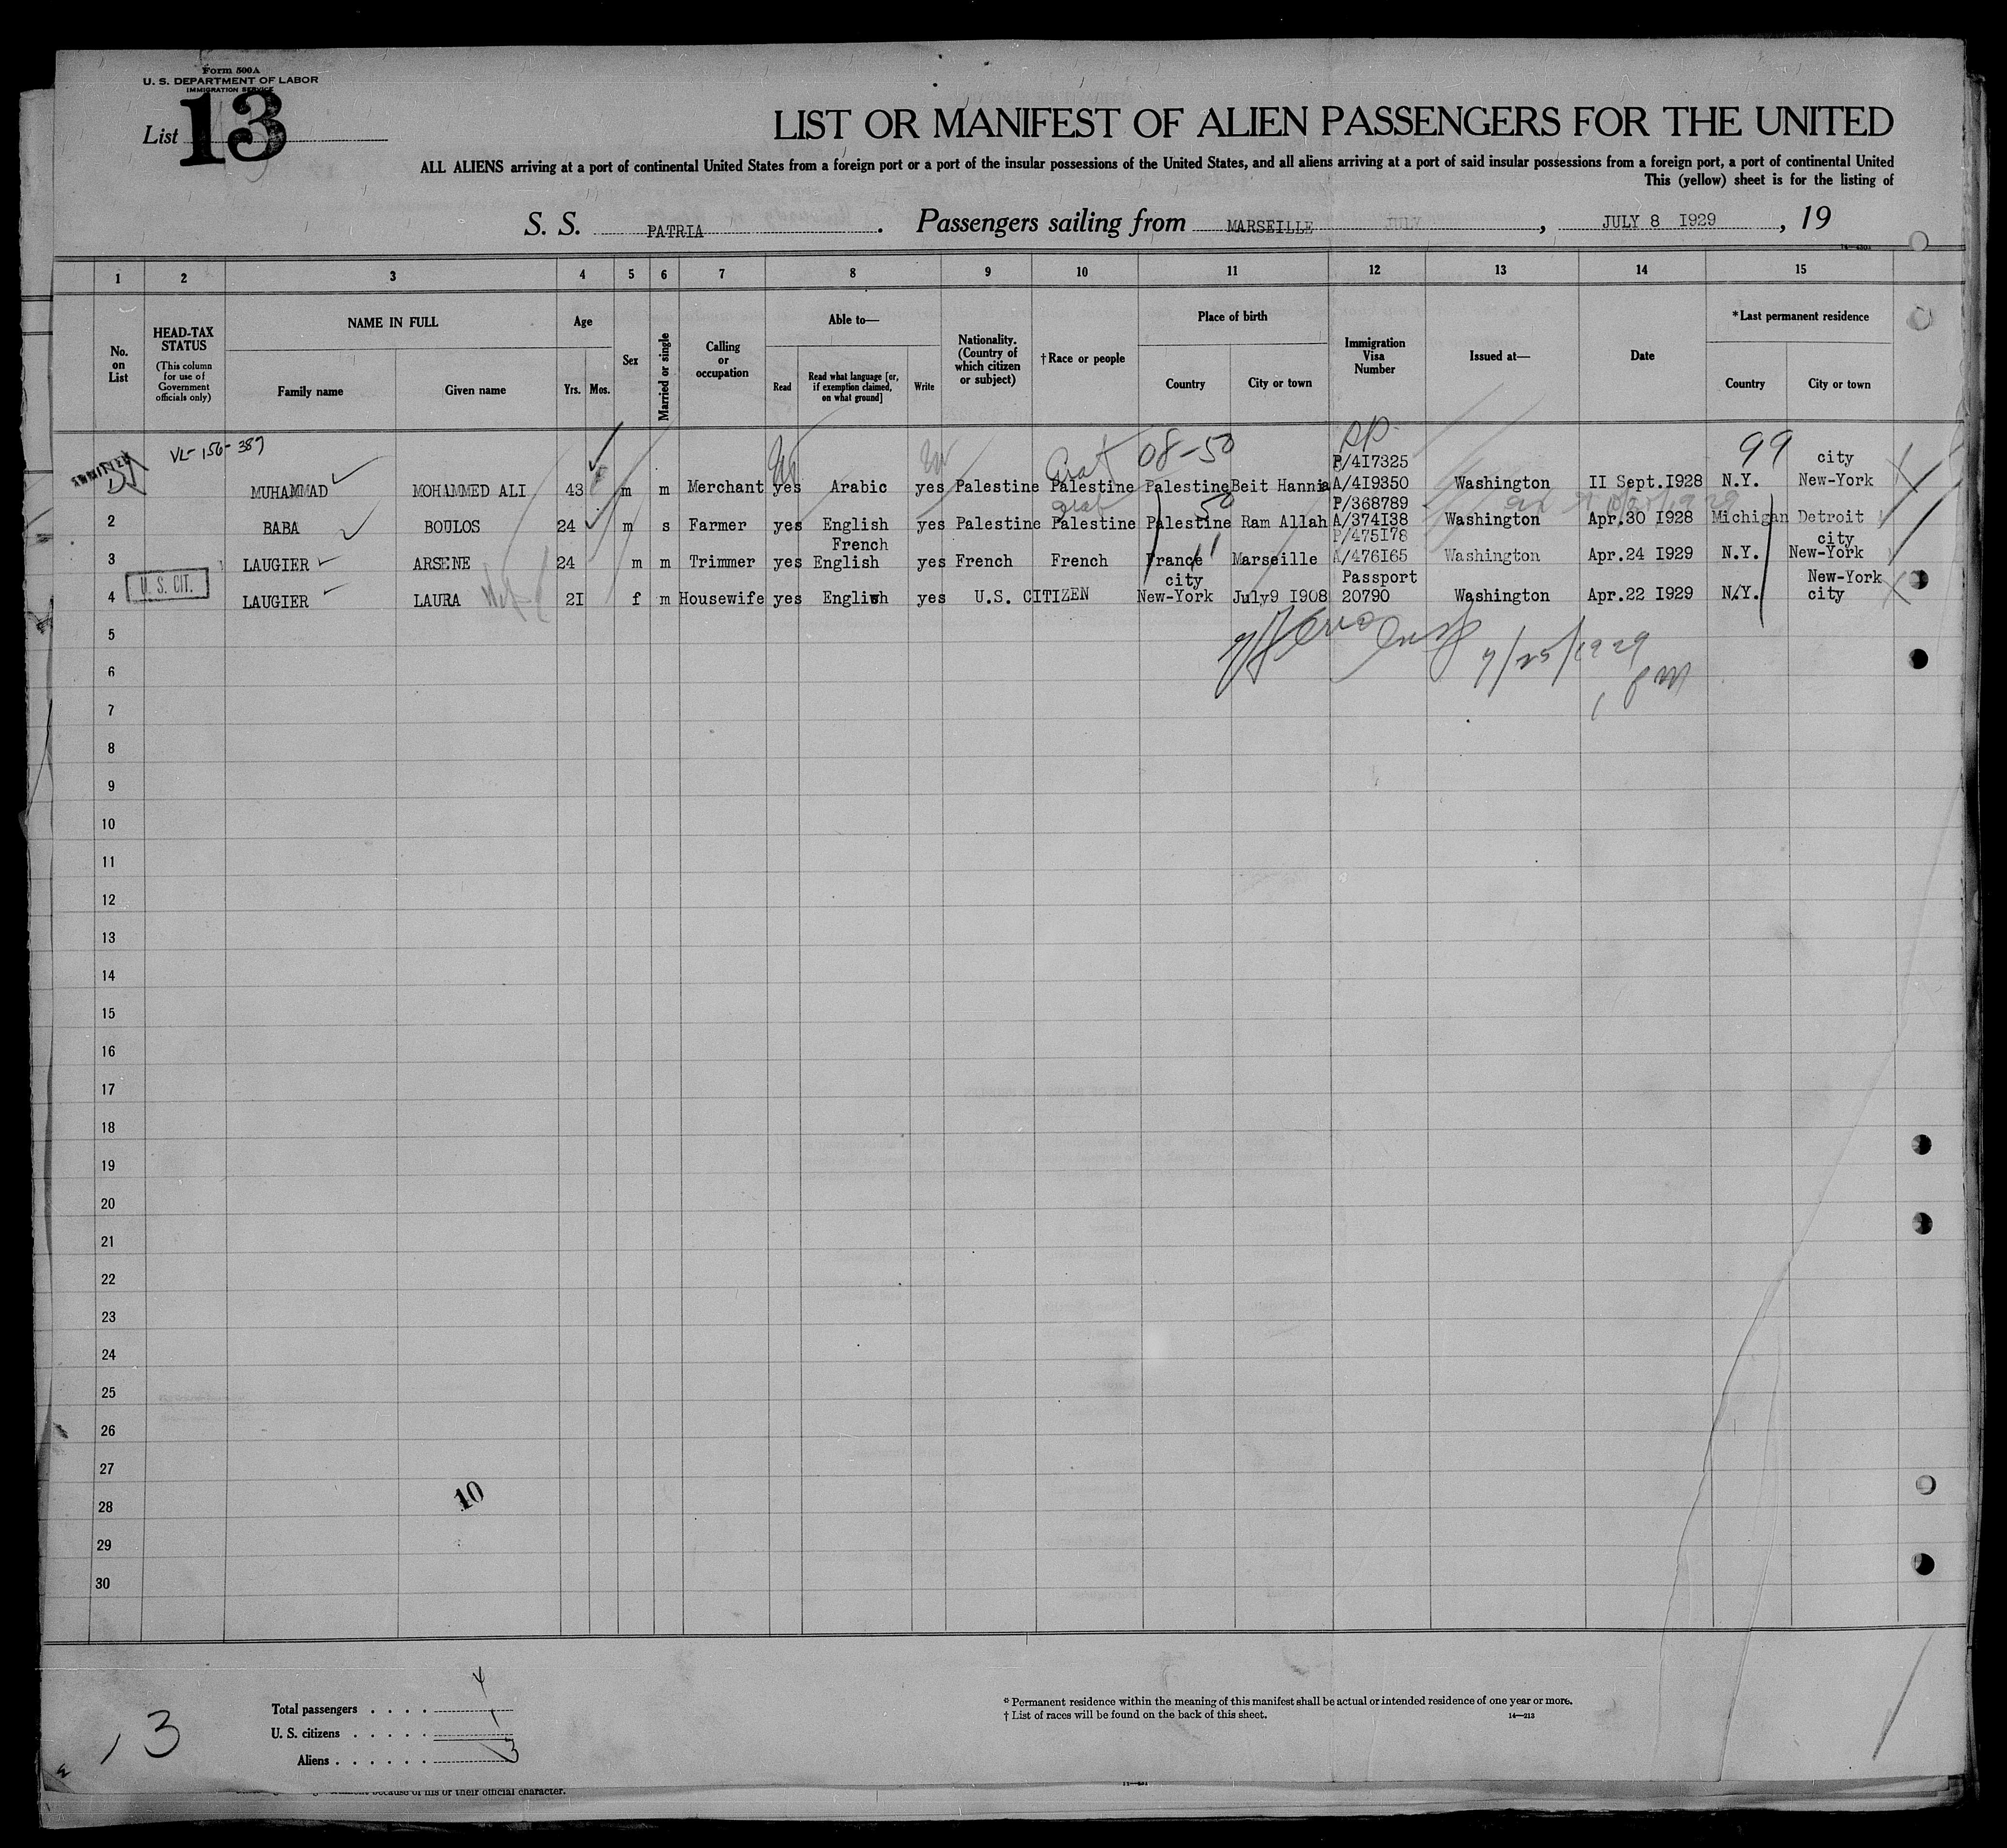 Form 500A
U. S. DEPARTMENT OF LABOR
IMMIGRATION SERVICE
List 13
LIST OR MANIFEST OF ALIEN PASSENGERS FOR THE UNITED
ALL ALIENS arriving at a port of continental United States from a foreign port or a port of the insular possessions of the United States, and all aliens arriving at a port of said insular possessions from a foreign port, a port of continental United
This (yellow) sheet is for the listing of
S. S. PATRIA. Passengers sailing from MARSEILLE JULY, JULY 8 I929, 19
1 2 3 4 5 6 7 8 9 10 11 12 13 14 15
No. on List
HEAD-TAX STATUS
(This column for use of Government officials only)
NAME IN FULL
Family name
Given name
Age
Yrs. Mos.
Sex
Married or single
Calling or occupation
Able to—
Read
Read what language [or, if exemption claimed, on what ground]
Write
Nationality. (Country of which citizen or subject)
†Race or people
Place of birth
Country
City or town
Immigration Visa Number
Issued at—
Date
*Last permanent residence
Country
City or town
ADMITTED
VL-156-387
08-50
99
P/4I7325 city
MUHAMMAD MOHAMMED ALI 43 m m Merchant yes Arabic yes Palestine Palestine Palestine Beit Hannia A/4I9350 Washington II Sept.I928 N.Y. New-York
50
P/368789
2 BABA BOULOS 24 m s Farmer yes English yes Palestine Palestine Palestine Ram Allah A/374I38 Washington Apr.30 I928 Michigan Detroit
French P/475I78 city
3 LAUGIER ARSENE 24 m m Trimmer yes English yes French French France Marseille A/476I65 Washington Apr.24 I929 N.Y. New-York
U. S. CIT.
city Passport New-York
4 LAUGIER LAURA 2I f m Housewife yes English yes U.S. CITIZEN New-York July9 I908 20790 Washington Apr.22 I929 N.Y. city
5
6
7
8
9
10
11
12
13
14
15
16
17
18
19
20
21
22
23
24
25
26
27
28
29
30
10
Total passengers . . . . 4
U. S. citizens . . . . . 1
Aliens . . . . . . 3
13
* Permanent residence within the meaning of this manifest shall be actual or intended residence of one year or more.
† List of races will be found on the back of this sheet.
14—213
because of his or their official character.